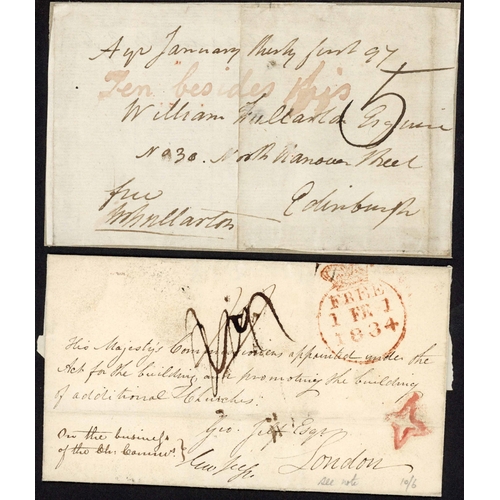 Ayr January thirty first 97
Ten besides his
5
William Fullarton Esquire
No 30. North Hanover Street
Edinburgh
free
FREE
1 FE 1
1834
His Majesty's Commissioners appointed under the
Act for the building and promoting the building
of additional Churches.
Geo. Esqr
On the business
of the Ch:
London
see note
10/6